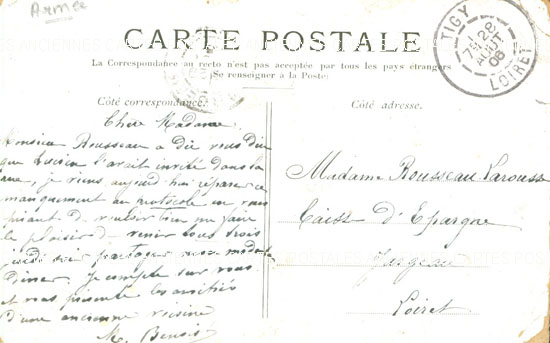 Armée
CARTE POSTALE
La Correspondance au recto n'est pas acceptée par tous les pays étrangers
(Se renseigner à la Poste)
TIGY
7 28
AOUT
06
LOIRET
Côté correspondance.
Côté adresse.
Chère Madame,
Monsieur Rousseau a dû vous dire
que Lucien l'avait invité dans la
rue, je viens aujourd'hui réparer ce
manquement au protocole en vous
disant de vouloir bien me faire
le plaisir de venir tous trois
jeudi soir partager mon modeste
dîner. Je compte sur vous
et vous présente les amitiés
d'une ancienne voisine
M. Benoist
Madame Rousseau Larousse
Caisse d'Epargne
Jargeau
Loiret